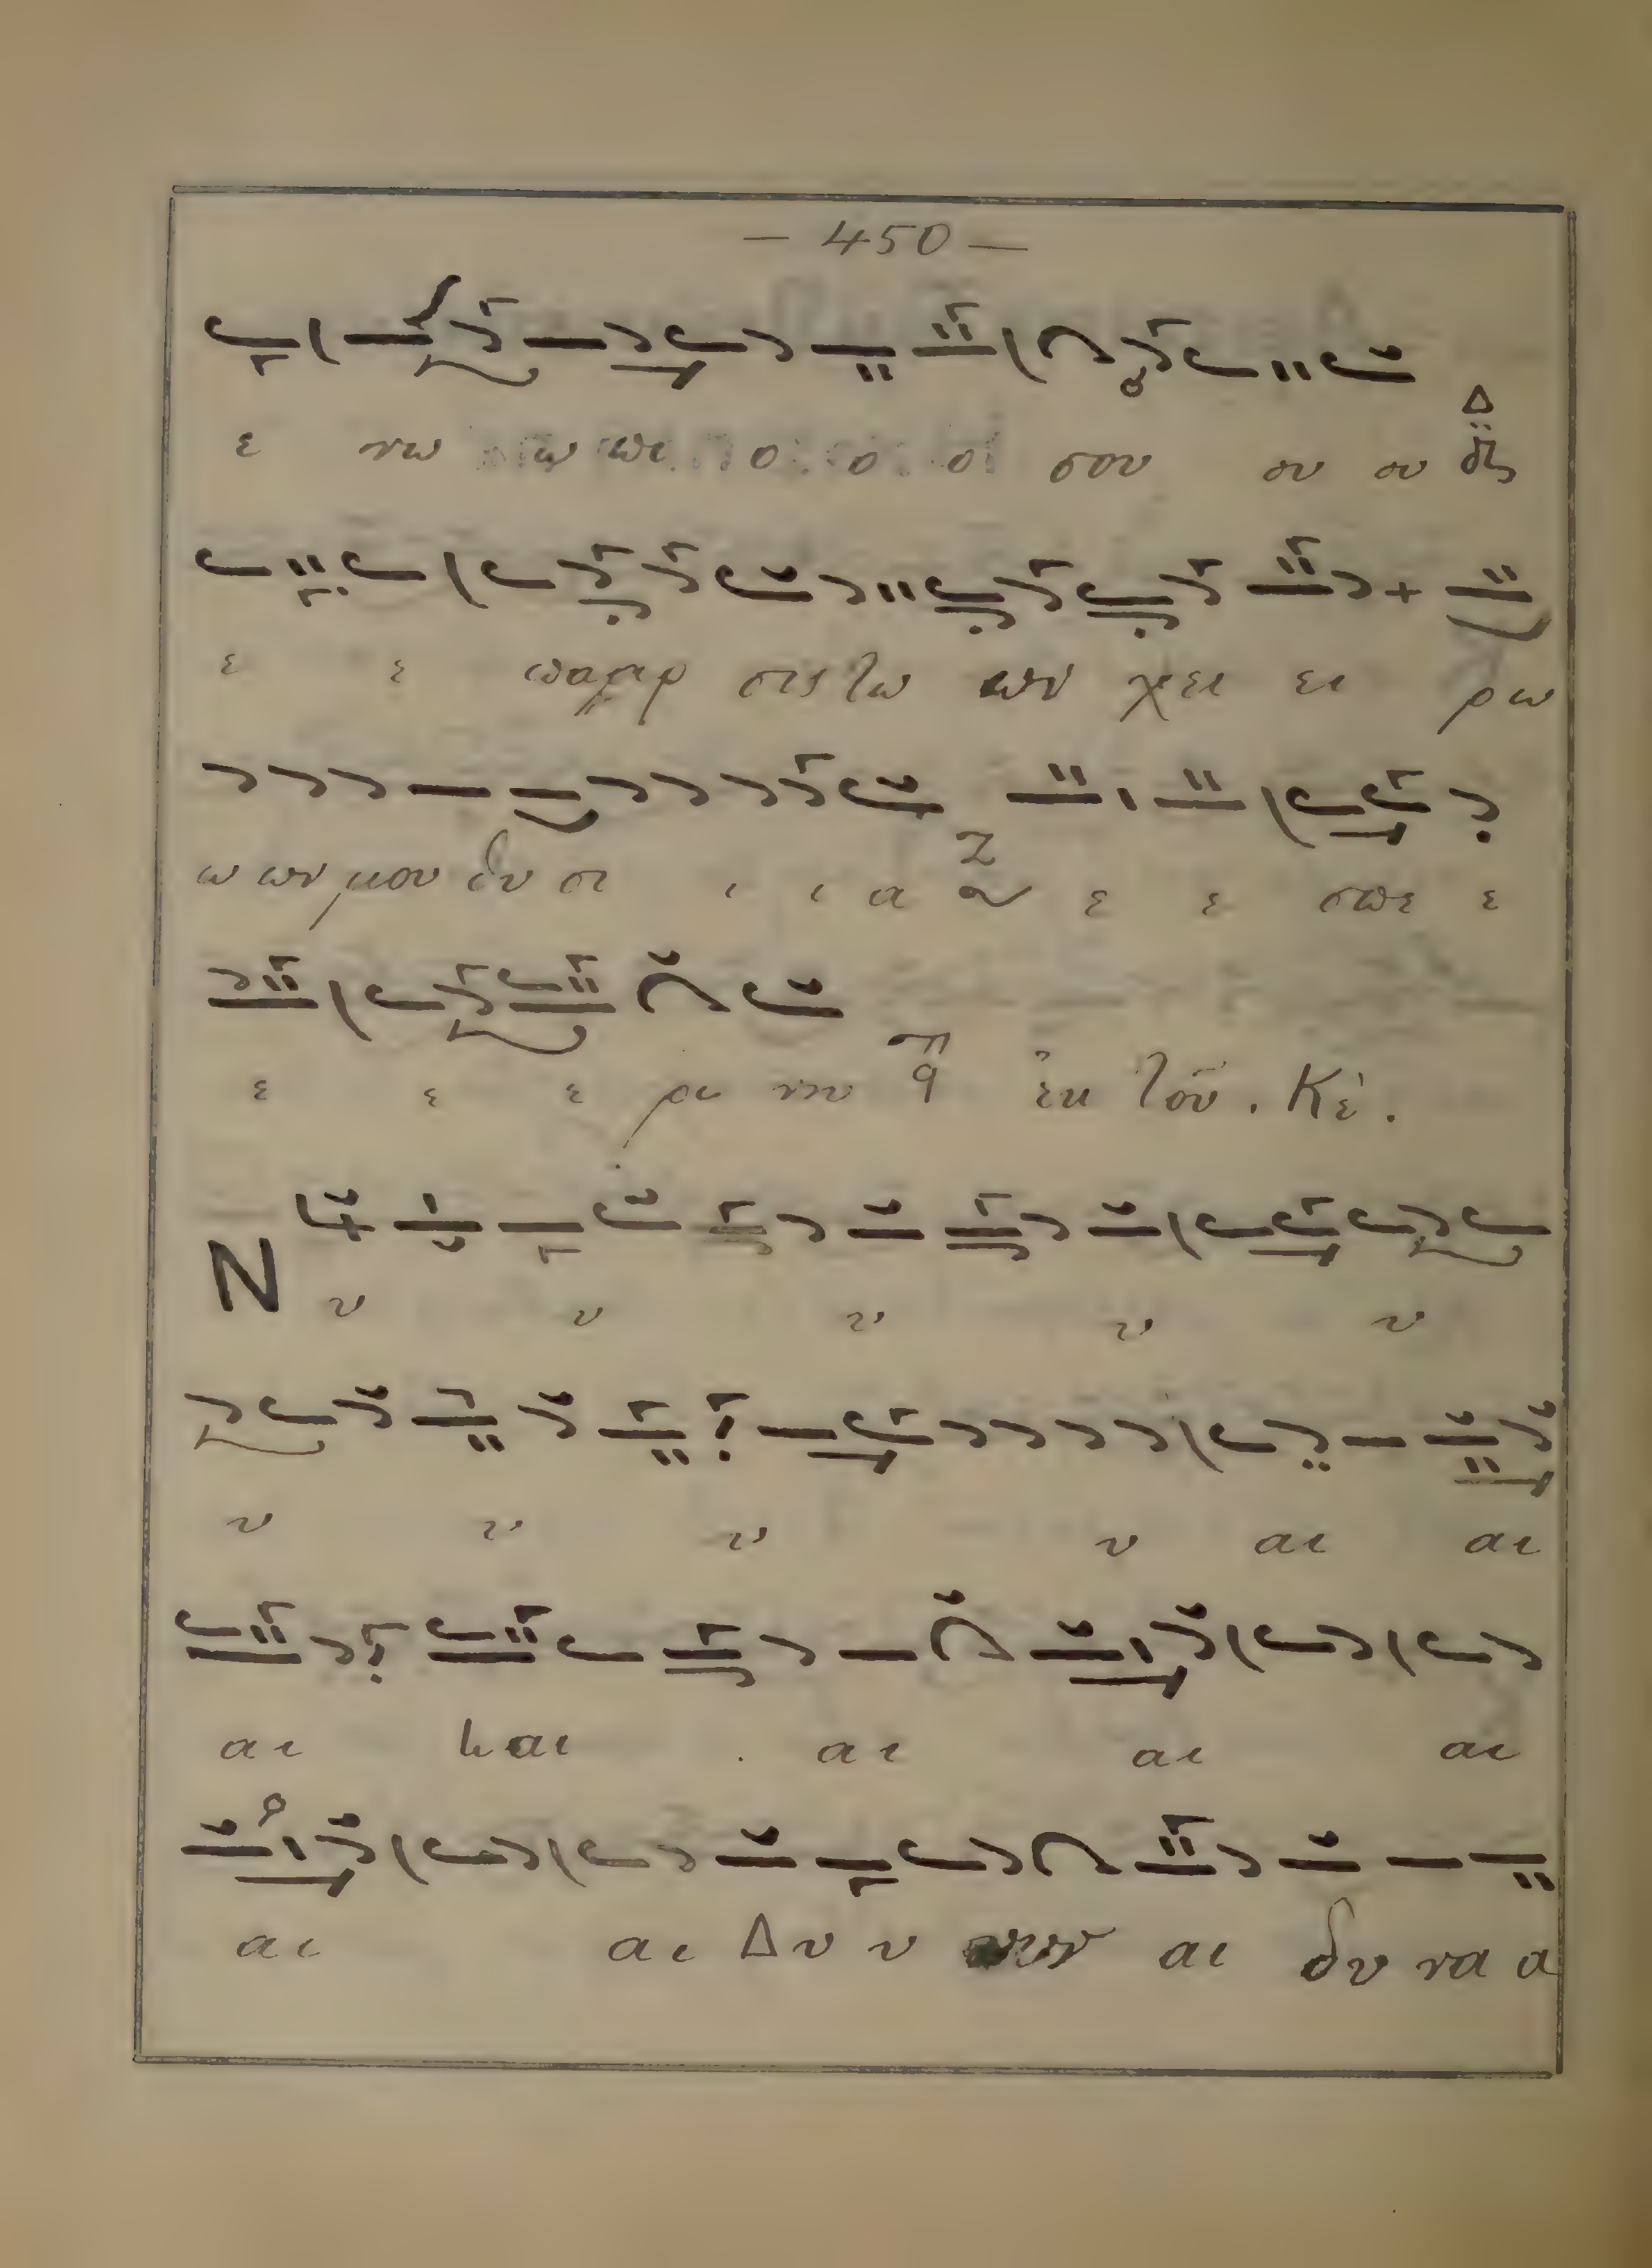 — 450 —
ε νω ω πι ο ο ο σου ου ου Δ δι
ε ε παρ σις τω ων χει ει ρω
ω ων μου θυ σι ι ι α Ζ ε ε σπε ε
ε ε ε ρι νη q ἐκ τοῦ. Κὲ.
Ν υ υ υ υ υ
υ υ υ υ αι αι
αι και αι αι αι
αι αι Δυ υ αι δυ να α